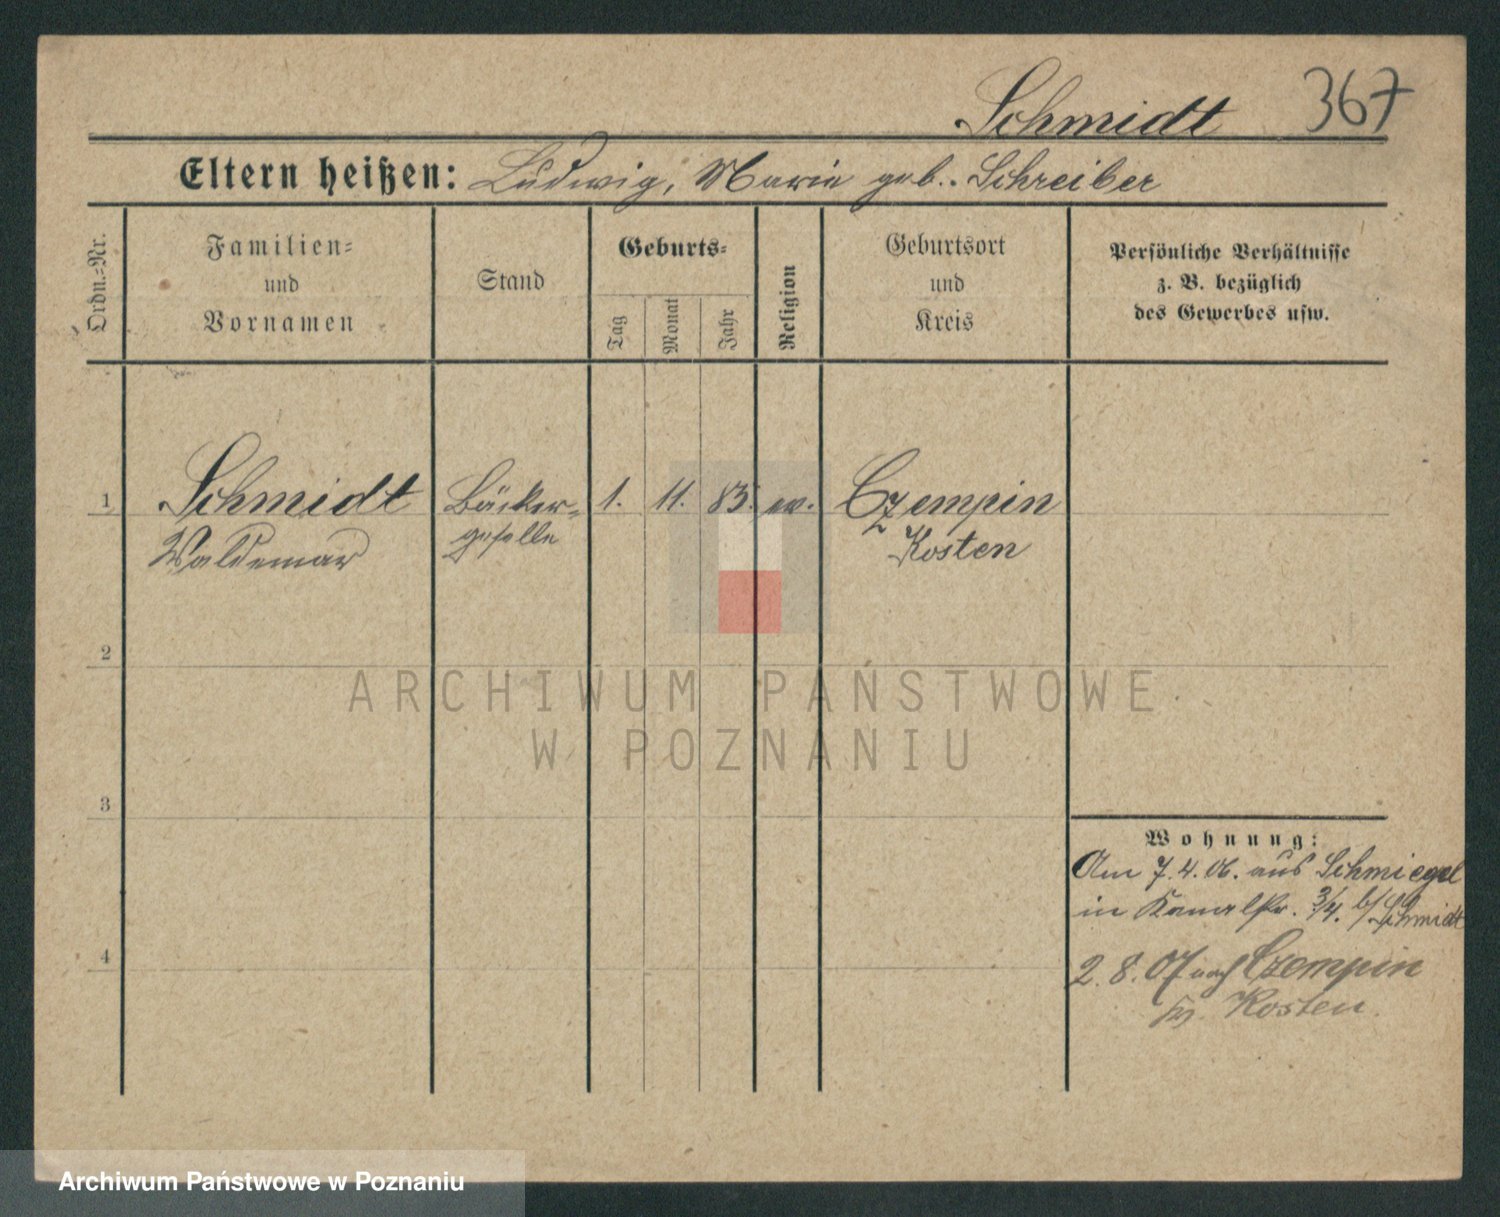 Schmidt 367
Eltern heißen: Ludwig, Marie geb. Schreiber
Ordn.-Nr.
Familien- und Vornamen
Stand
Geburts-
Tag
Monat
Jahr
Religion
Geburtsort und Kreis
Persönliche Verhältnisse
z. B. bezüglich
des Gewerbes usw.
1 Schmidt Bäcker- 1. 11. 83. ev. Czempin
Waldemar geselle Kosten
2
ARCHIWUM PAŃSTWOWE
W POZNANIU
3
Wohnung:
Am 7.4.06. aus Schmiegel
in Kanalstr. 3/4. b/ Schmidt
4
2.8.07 nach Czempin
Kr. Kosten.
Archiwum Państwowe w Poznaniu